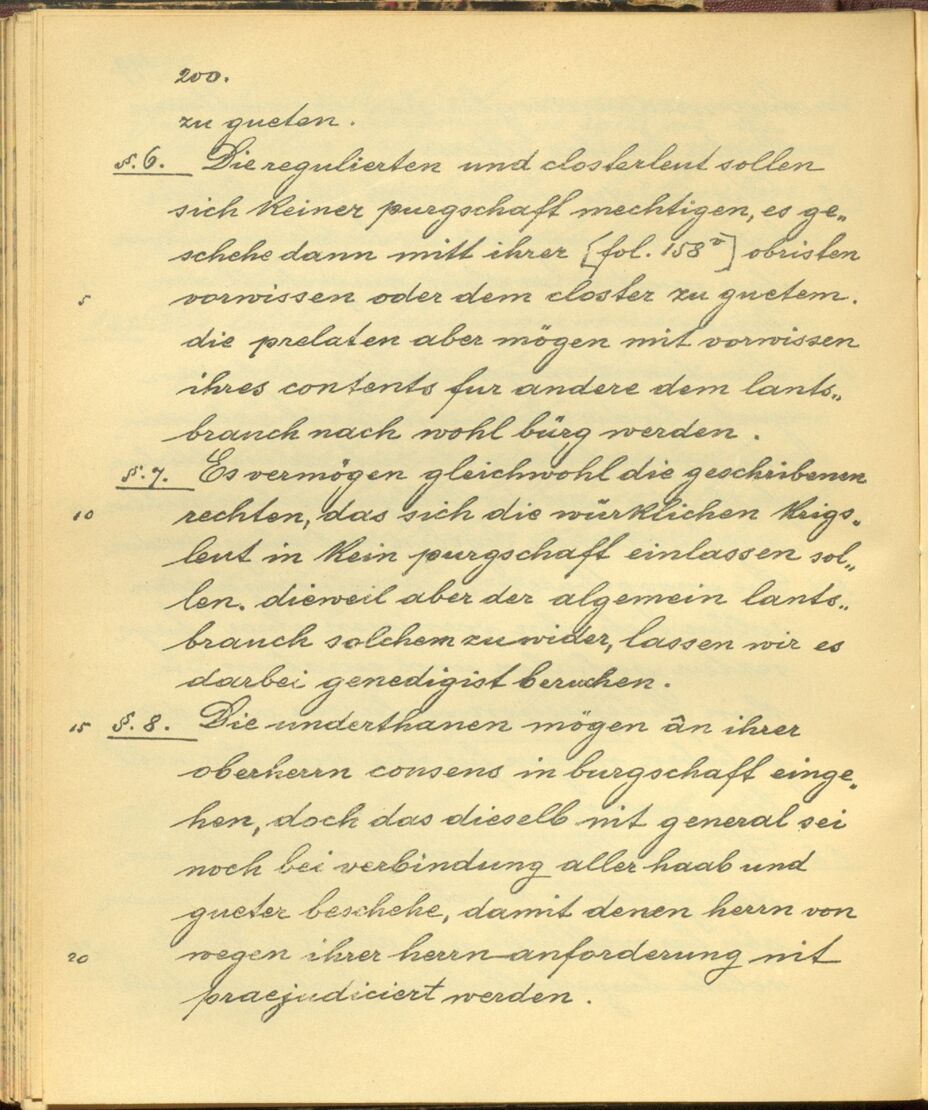 200.
zu gueten.
§. 6. Die regulierten und closterleut sollen
sich keiner purgschaft mechtigen, es ge„
schehe dann mitt ihrer [fol. 158ᵛ] obristen
5 vorwissen oder dem closter zu guetem.
die prelaten aber mögen mit vorwissen
ihres contents fur andere dem lants„
brauch nach wohl bürg werden.
§. 7. Es vermögen gleichwohl die geschribenen
10 rechten, das sich die würklichen krigs„
leut in kein purgschaft einlassen sol„
len. dieweil aber der algemein lants„
brauch solchem zu wider, lassen wir es
darbei genedigist beruehen.
15 §. 8. Die underthanen mögen ân ihrer
oberherrn consens in burgschaft einge„
hen, doch das dieselb nit general sei
noch bei verbindung aller haab und
gueter beschehe, damit denen herrn von
20 wegen ihrer herrn-anforderung nit
praejudiciert werden.